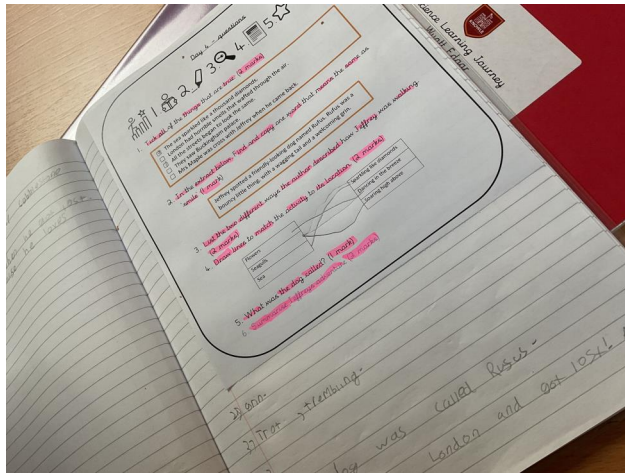 ence Learning Journey
Wyatt Edgar
Day 4 - questions
1 2 3 4 5
1. Tick all of the things that are true. (2 marks)
The sea sparkled like a thousand diamonds.
London had horrible smells that wafted through the air.
All the streets began to look the same.
They saw Buckingham palace.
Mrs Maple was cross with Jeffrey when he came back.
2. In the extract below. Find and copy one word that means the same as
smile (1 mark)
Jeffrey spotted a friendly-looking dog named Rufus. Rufus was a
bouncy little thing, with a wagging tail and a welcoming grin.
3. List the two different ways the author described how Jeffrey was walking.
(2 marks)
4. Draw lines to match the activity to its location. (2 marks)
Flowers
Seagulls
Sea
Sparkling like diamonds
Dancing in the breeze
Soaring high above
5. What was the dog called? (1 mark)
6. (2 marks)
Trot , trembling.
was called Rusus.
London and got lost